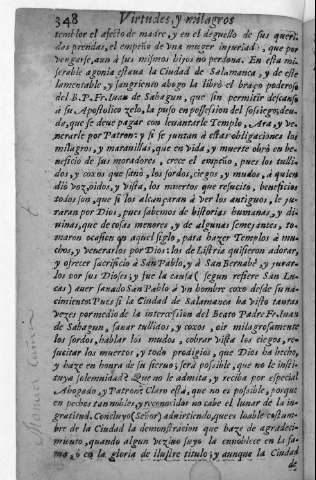 348 Virtudes, y milagros
temblor el afecto de madre, y en el deguello de sus queri-
das prendas, el empeño de vna muger injuriada, que por
vengarse, aun à sus mismos hijos no perdona. En esta mi-
serable agonia estaua la Ciudad de Salamanca, y de este
lamentable, y sangriento ahogo la librò el braço poderoso
del B. P. Fr. Iuan de Sahagun, que sin permitir descanso
à su Apostolico zelo, la puso en possession del sossiego; deu-
da, que se deue pagar con leuantarle Templo, Ara, y ve-
nerarle por Patron: y si se juntan à estas obligaciones los
milagros, y marauillas, que en vida, y muerte obrò en be-
neficio de sus moradores, crece el empeño, pues los tulli-
dos, y coxos que sanò, los sordos, ciegos, y mudos, à quien
diò voz, oidos, y vista, los muertos que resucitò, beneficios
todos son, que si los alcançaran à ver los antiguos, le ju-
raran por Dios, pues sabemos de historias humanas, y di-
uinas, que de cosas menores, y de algunas semejantes, to-
maron ocasion en aquel siglo, para hazer Templos à mu-
chos, y venerarlos por Dios: los de Listria quisieron adorar,
y ofrecer sacrificio à San Pablo, y à San Bernabè, y jurar-
los por sus Dioses; y fue la causa (segun refiere San Lu-
cas) auer sanado San Pablo à vn hombre coxo desde su na-
cimiento. Pues si la Ciudad de Salamanca ha visto tantas
vezes por medio de la intercession del Beato Padre Fr. Iuan
de Sahagun, sanar tullidos, y coxos, oir milagrosamente
los sordos, hablar los mudos, cobrar vista los ciegos, re-
sucitar los muertos, y todo prodigios, que Dios ha hecho,
y haze en honra de su sieruo; serà possible, que no le insti-
tuya solemnidad? Que no le admita, y reciba por especial
Abogado, y Patron? Claro està, que no es possible, porque
en pechos tan nobles, y reconocidos no cabe el lunar de la in-
gratitud. Concluyo (Señor) advirtiendo, que es loable costum-
bre de la Ciudad la demonstracion que haze de agradeci-
miento, quando algun vezino suyo la ennoblece en la fa-
ma, ò en la gloria de ilustre titulo; y aunque la Ciudad
de